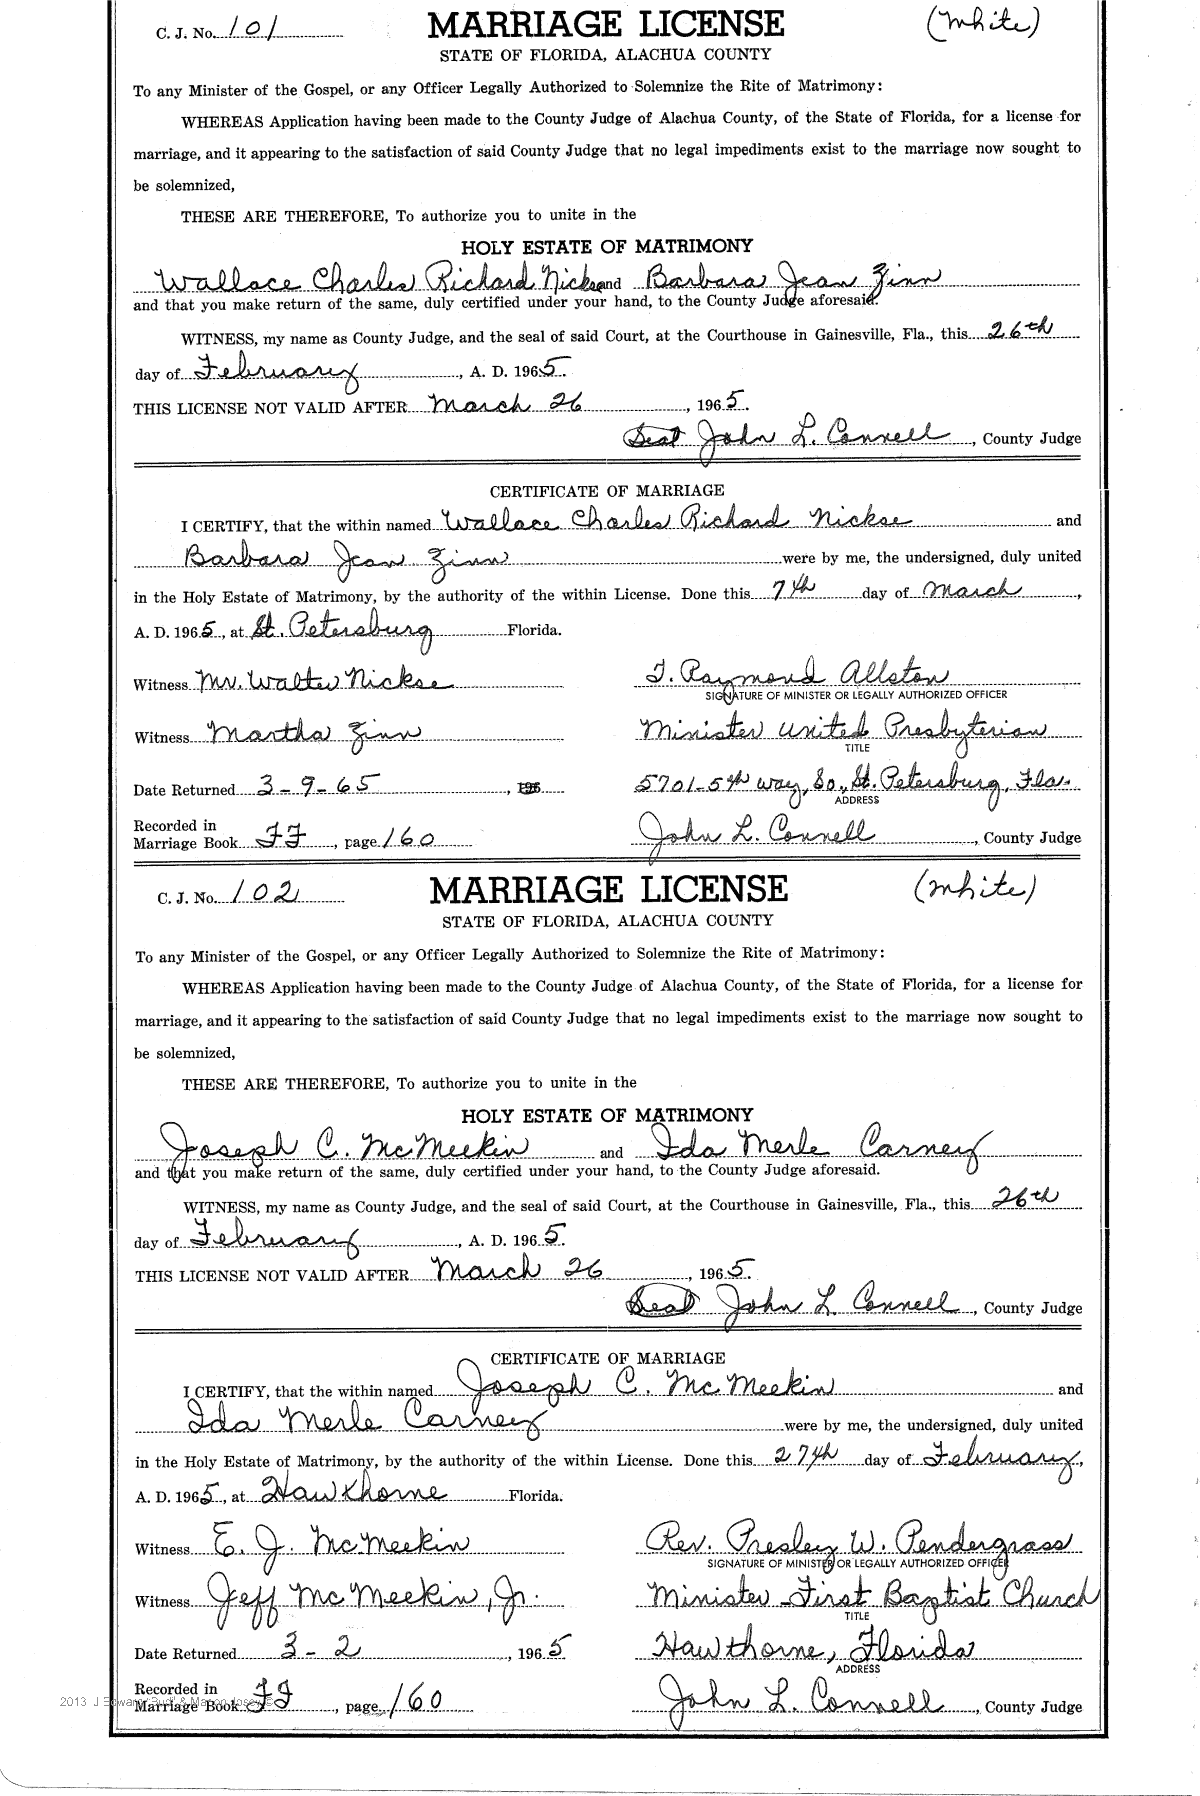 C. J. No. 101 MARRIAGE LICENSE (White)
STATE OF FLORIDA, ALACHUA COUNTY
To any Minister of the Gospel, or any Officer Legally Authorized to Solemnize the Rite of Matrimony:
WHEREAS Application having been made to the County Judge of Alachua County, of the State of Florida, for a license for
marriage, and it appearing to the satisfaction of said County Judge that no legal impediments exist to the marriage now sought to
be solemnized,
THESE ARE THEREFORE, To authorize you to unite in the
HOLY ESTATE OF MATRIMONY
Wallace Charles Richard Nickse and Barbara Jean Zinn
and that you make return of the same, duly certified under your hand, to the County Judge aforesaid.
WITNESS, my name as County Judge, and the seal of said Court, at the Courthouse in Gainesville, Fla., this 26th
day of February, A. D. 1965.
THIS LICENSE NOT VALID AFTER March 26, 1965.
Seal John L. Connell, County Judge
CERTIFICATE OF MARRIAGE
I CERTIFY, that the within named Wallace Charles Richard Nickse and
Barbara Jean Zinn were by me, the undersigned, duly united
in the Holy Estate of Matrimony, by the authority of the within License. Done this 7th day of March,
A. D. 1965, at St. Petersburg Florida.
Witness Mr. Walter Nickse T. Raymond Allston
SIGNATURE OF MINISTER OR LEGALLY AUTHORIZED OFFICER
Witness Martha Zinn Minister United Presbyterian
TITLE
Date Returned 3-9-65, 196 5701-5th way, So., St. Petersburg, Fla.
ADDRESS
Recorded in
Marriage Book FF, page 160 John L. Connell, County Judge
C. J. No. 102 MARRIAGE LICENSE (White)
STATE OF FLORIDA, ALACHUA COUNTY
To any Minister of the Gospel, or any Officer Legally Authorized to Solemnize the Rite of Matrimony:
WHEREAS Application having been made to the County Judge of Alachua County, of the State of Florida, for a license for
marriage, and it appearing to the satisfaction of said County Judge that no legal impediments exist to the marriage now sought to
be solemnized,
THESE ARE THEREFORE, To authorize you to unite in the
HOLY ESTATE OF MATRIMONY
Joseph C. McMeekin and Ida Merle Carney
and that you make return of the same, duly certified under your hand, to the County Judge aforesaid.
WITNESS, my name as County Judge, and the seal of said Court, at the Courthouse in Gainesville, Fla., this 26th
day of February, A. D. 1965.
THIS LICENSE NOT VALID AFTER March 26, 1965.
Seal John L. Connell, County Judge
CERTIFICATE OF MARRIAGE
I CERTIFY, that the within named Joseph C. McMeekin and
Ida Merle Carney were by me, the undersigned, duly united
in the Holy Estate of Matrimony, by the authority of the within License. Done this 27th day of February,
A. D. 1965, at Hawthorne Florida.
Witness E. J. McMeekin Rev. Presley W. Pendergrass
SIGNATURE OF MINISTER OR LEGALLY AUTHORIZED OFFICER
Witness Jeff McMeekin, Jr. Minister - First Baptist Church
TITLE
Date Returned 3-2, 1965 Hawthorne, Florida
ADDRESS
Recorded in
Marriage Book FF, page 160 John L. Connell, County Judge
2013 J Edward